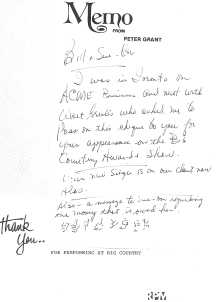 Memo
FROM
PETER GRANT
Bill & Sue-On
I was in Toronto on
ACME Business and met with
Walt Grealis who asked me to
Pass on this cheque to you for
your appearance on the Big
Country Awards Show.
new Single is on our chart now
Also.
Also - a message to Sue-on regarding
the money that is owed
Thank
You..
FOR PERFORMING AT BIG COUNTRY
RPM